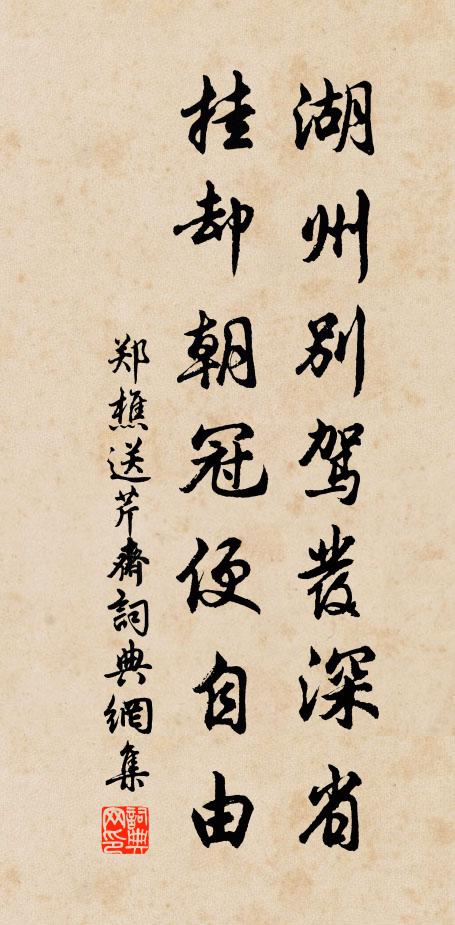 湖州别駕發深省
挂却朝冠便自由
郑樵送芹齋詞典網集
詞典
网印